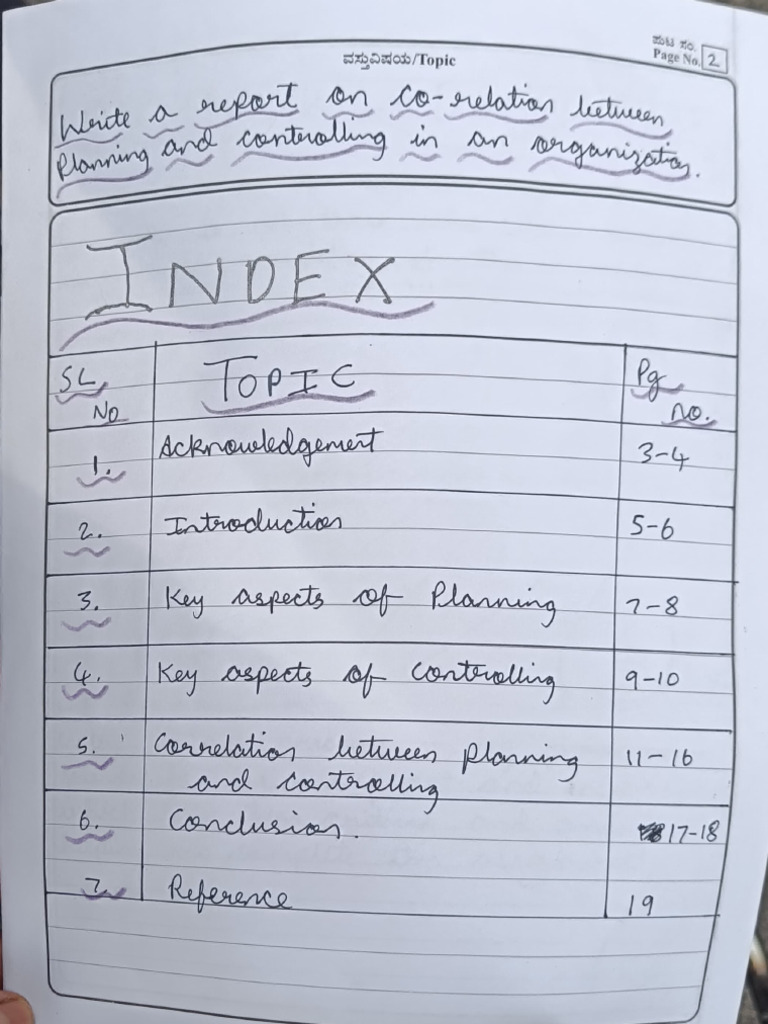 ಪುಟ ಸಂ.
ವಸ್ತುವಿಷಯ/Topic
Page No. 2
Write a report on co-relation between
Planning and controlling in an organization.
INDEX
SL No TOPIC Pg no.
1. Acknowledgement 3-4
2. Introduction 5-6
3. Key aspects of Planning 7-8
4. Key aspects of controlling 9-10
5. Correlation between planning 11-16
and controlling
6. Conclusion. 17-18
7. Reference 19